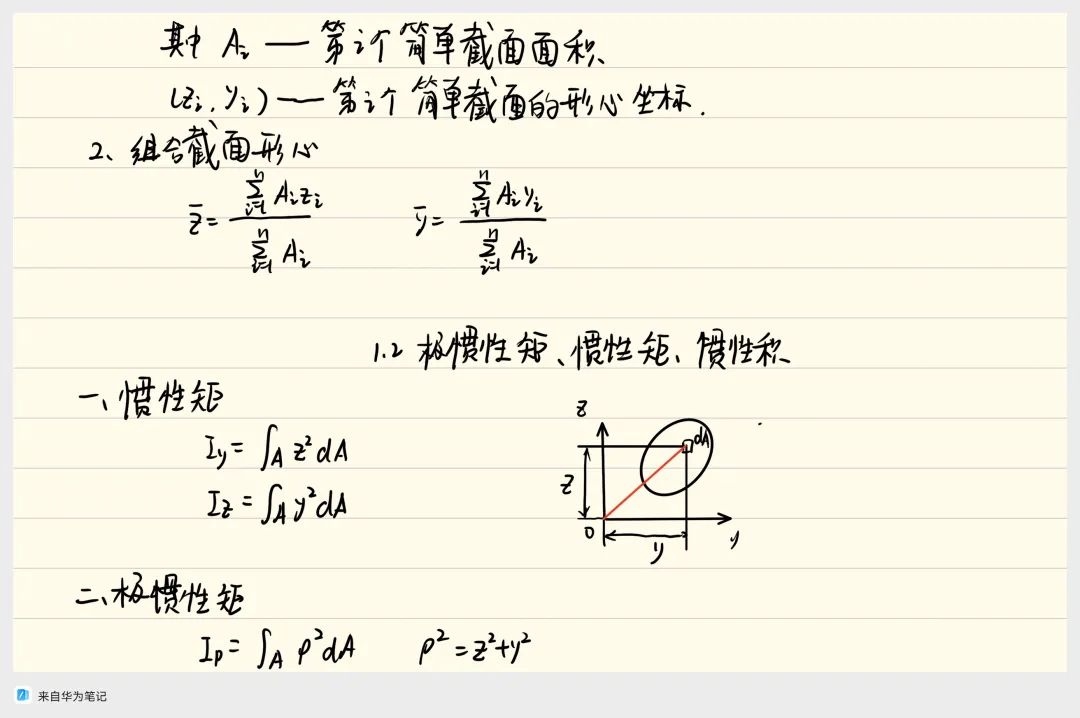 其中 Aᵢ — 第i个简单截面面积、
(zᵢ, yᵢ) — 第i个简单截面的形心坐标.
2、组合截面形心
z̄ = ∑ⁿᵢ₌₁ Aᵢzᵢ / ∑ⁿᵢ₌₁ Aᵢ ȳ = ∑ⁿᵢ₌₁ Aᵢyᵢ / ∑ⁿᵢ₌₁ Aᵢ
1.2 极惯性矩、惯性矩、惯性积
一、惯性矩
I_y = ∫_A z²dA
I_z = ∫_A y²dA
z
dA
z
0
y
y
二、极惯性矩
I_ρ = ∫_A ρ²dA ρ² = z²+y²
来自华为笔记